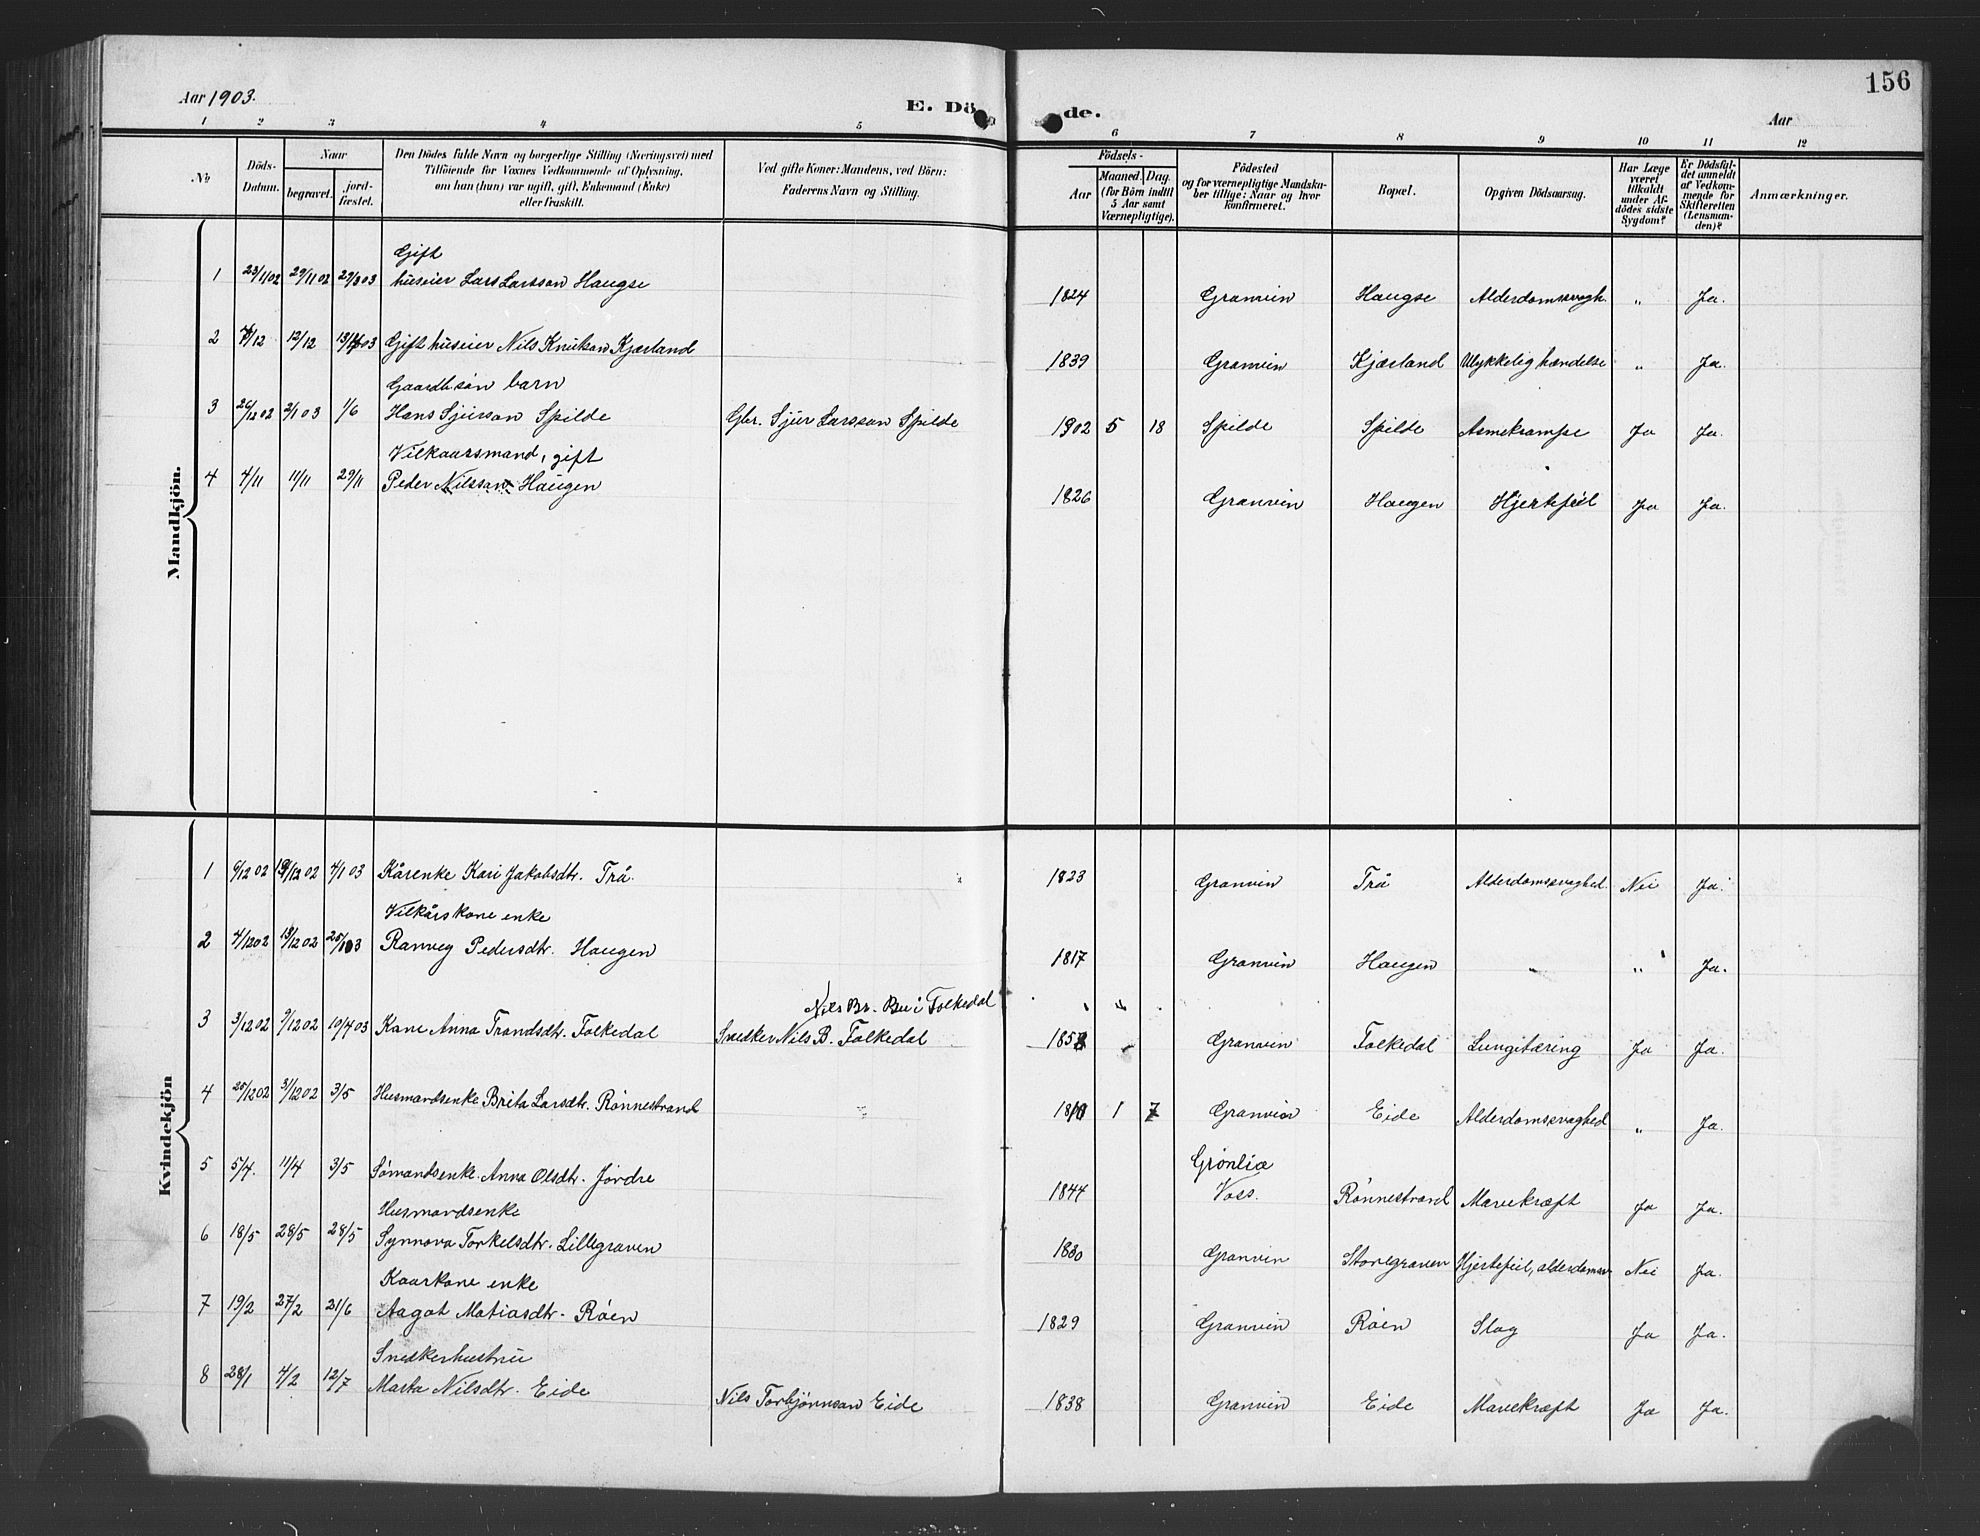 156
Aar 1903.
E. Dö de.
Aar
1 2 3 4 5 6 7 8 9 10 11 12
No
Döds-Datum.
Naar
begravet.
jord-fæstet.
Den Dödes fulde Navn og borgerlige Stilling (Næringsvei) med
Tilföiende for Voxnes Vedkommende af Oplysning,
om han (hun) var ugift, gift, Enkemand (Enke)
eller fraskilt.
Ved gifte Koner: Mandens, ved Börn:
Faderens Navn og Stilling.
Födsels-
Aar
Maaned. Dag.
(for Börn indtil
5 Aar samt
Værnepligtige).
Födested
og for værnepligtige Mandska-
ber tillige: Naar og hvor
konfirmeret.
Bopæl.
Opgiven Dödsaarsag.
Har Læge
været
tilkaldt
under Af-
dödes sidste
Sygdom?
Er Dödsfal-
det anmeldt
af Vedkom-
mende for
Skifteretten
(Lensman-
den)?
Anmærkninger.
Mandkjön.
Gift
1 23/11 02 29/11 02 29/3 03 huseier Lars Larsson Haugse 1824 Granvin Haugse Alderdomssvagh. " Ja.
2 /12 12/12 03 Gift huseier Nils Knutson Kjærland 1839 Granvin Kjærland Ulykkelig hændelse " Ja.
Gaardb.søn barn
3 26/12 02 2/1 03 1/6 Hans Sjursson Spilde Gbr. Sjur Larsson Spilde 1902 5 18 Spilde Spilde Asmekrampe Ja Ja.
Vilkaarsmand, gift
4 4/11 11/11 29/11 Peder Nilsson Haugen 1826 Granvin Haugen Hjertefeil Ja Ja.
Kvindekjön
1 6/12 02 /12 02 4/1 03 Kårenke Kari Jakobsdtr. Trå 1823 Granvin Trå Alderdomssvaghed. Nei Ja.
Vilkårskone enke
2 4/12 02 13/12 02 25/1 03 Ranveg Pedersdtr. Haugen 1817 Granvin Haugen " " Ja.
Nils Br. Bu i Folkedal
3 3/12 02 9/12 02 10/4 03 Kone Anna Trondsdtr. Folkedal Snedker Nils B. Folkedal 1858 Granvin Folkedal Lungitæring Ja Ja.
4 25/12 02 31/12 02 3/5 Husmandsenke Brita Larsdtr. Rönnestrand 1 7 Granvin Eide Alderdomssvaghed " Ja.
5 5/4. 11/4 3/5 Sömandsenke Anna Olsdtr. Jördre 1844 Grönlia Voss. Rönnestrand Mavekræft Ja Ja.
Husmandsenke
6 18/5 28/5 28/5 Synnova Torkelsdtr. Lillegraven 1830 Granvin Storegraven Hjertefeil, alderdomssv Nei Ja.
Kaarkone enke
7 19/2 27/2 21/6 Aagot Matiasdtr. Röen 1829 Granvin Röen Slag Ja Ja.
Snedkerhustru
8 28/1 4/2 12/7 Marta Nilsdtr. Eide Nils Torbjörnson Eide 1838 Granvin Eide Mavekræft Ja Ja.